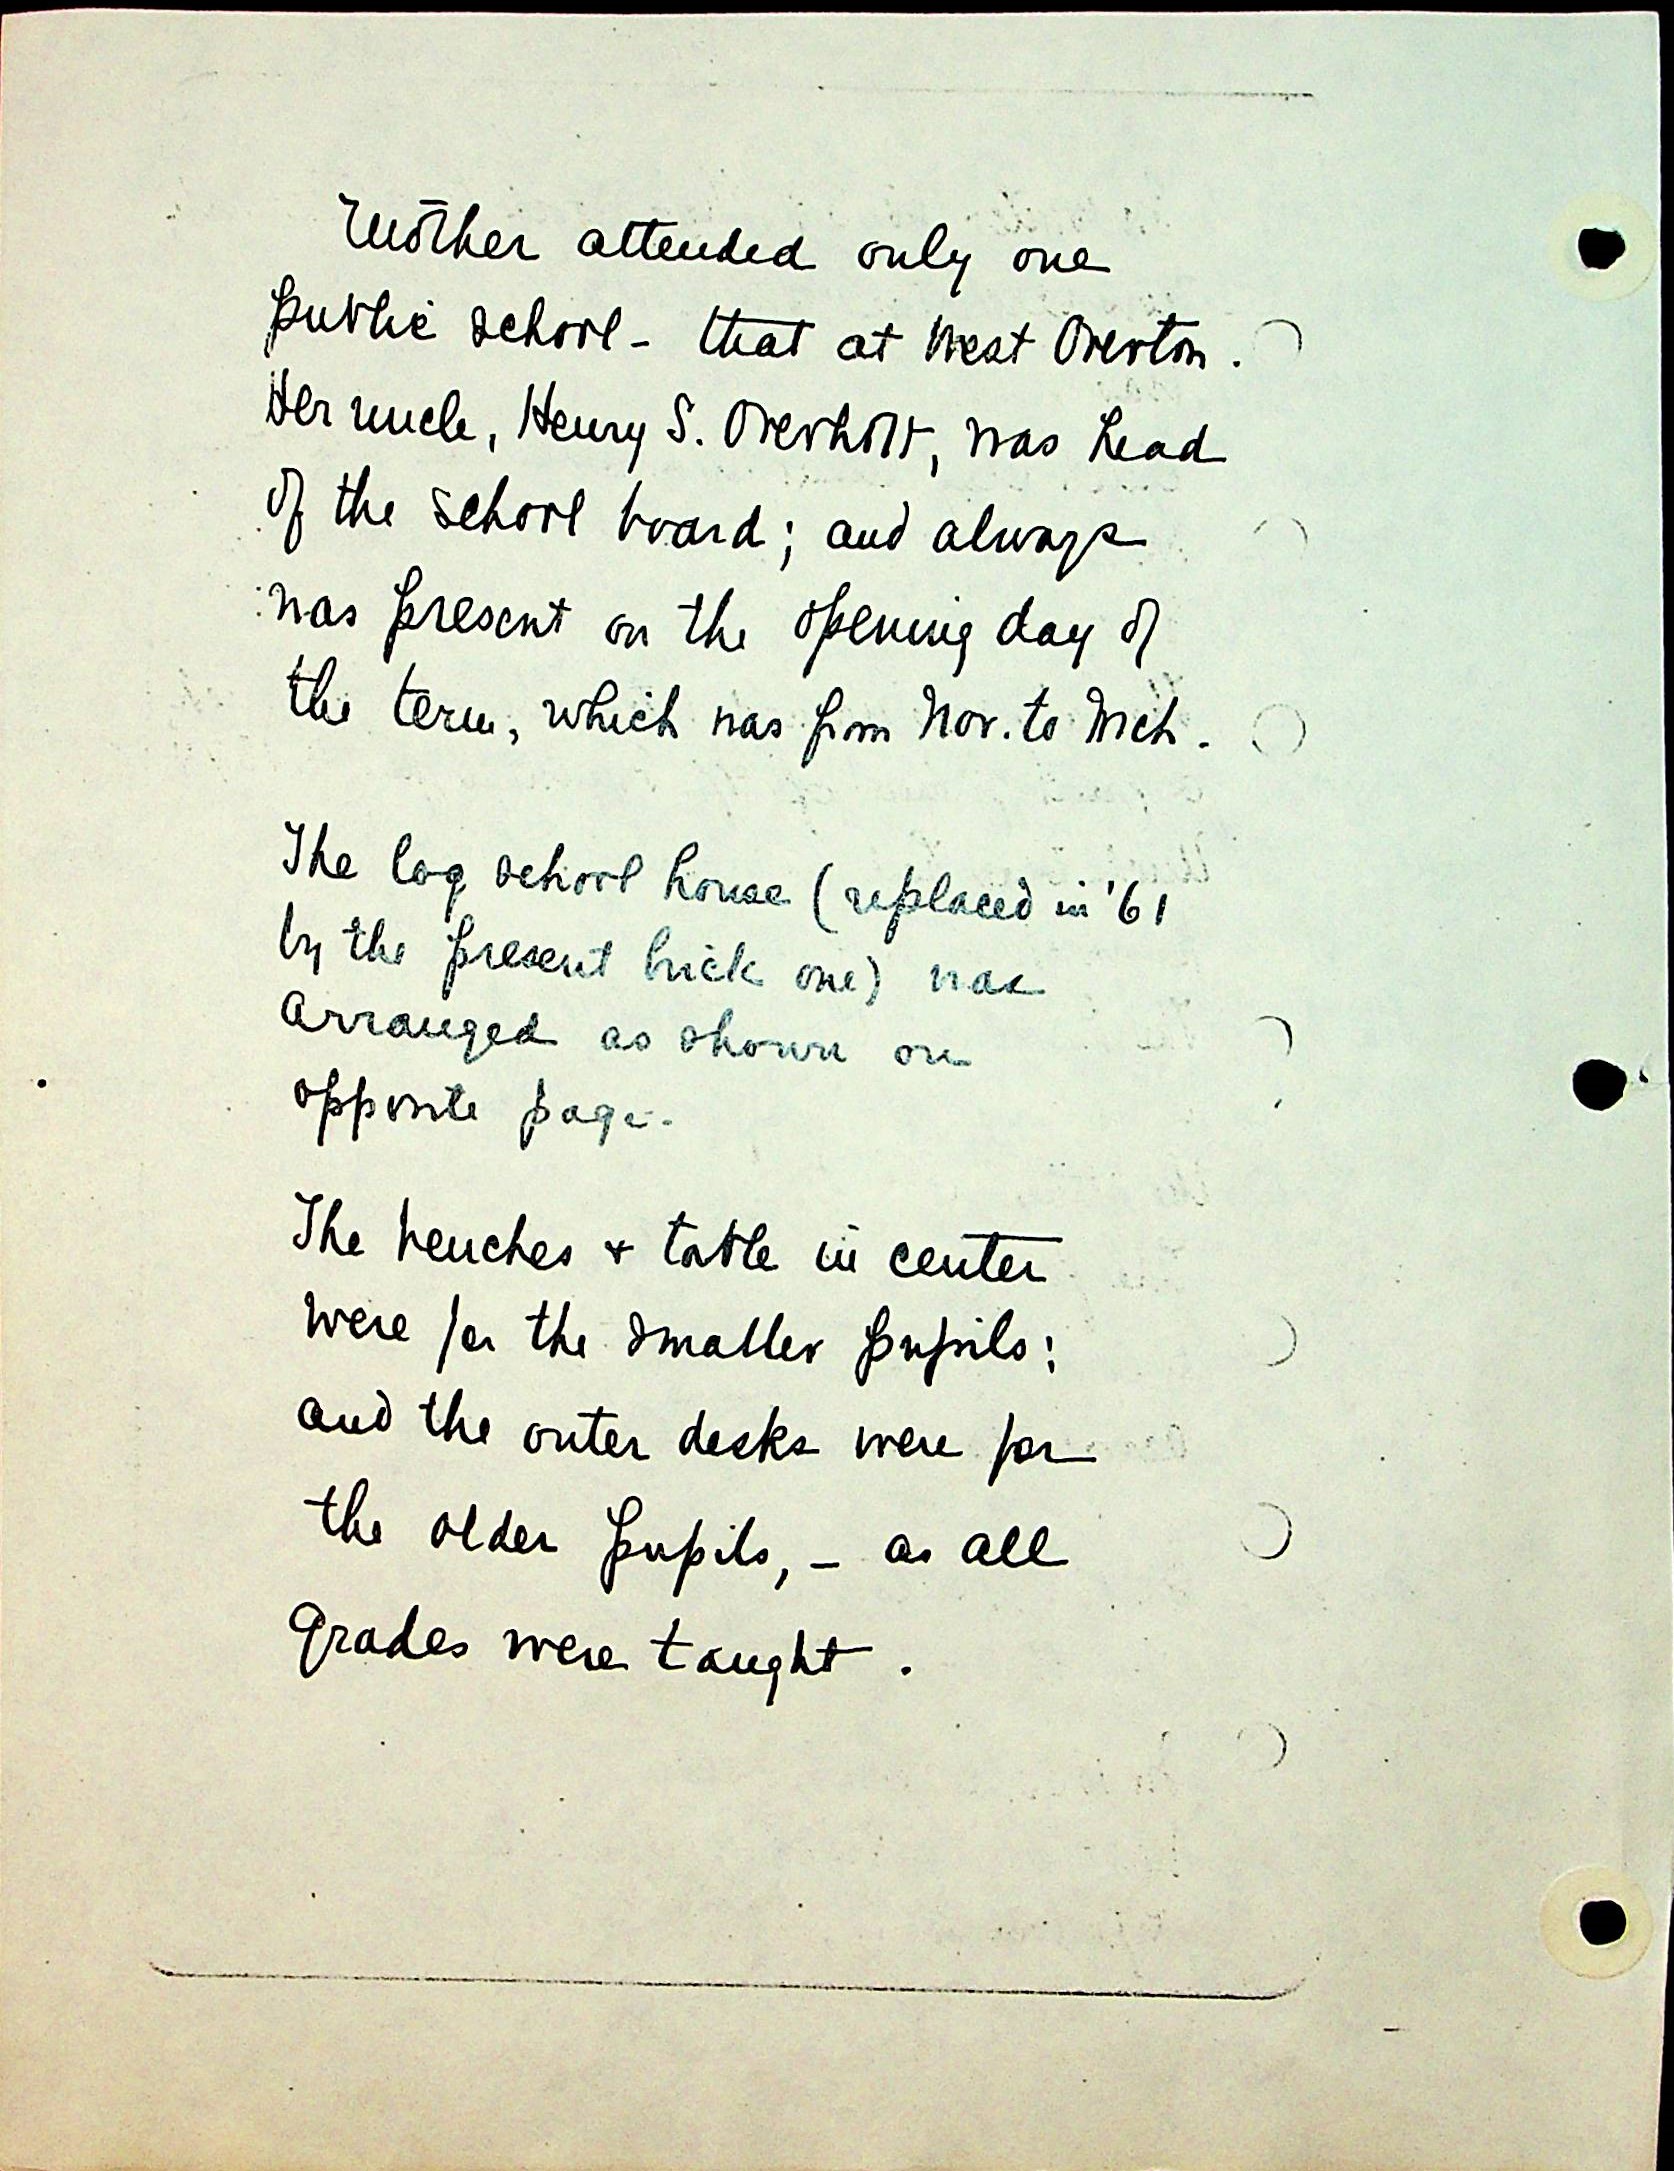 Mother attended only one
public school - that at West Overton.
Her uncle, Henry S. Overholt, was head
of the school board; and always
was present on the opening day of
the term, which was from Nov. to Mch.
The log school house (replaced in '61
by the present brick one) was
arranged as shown on
opposite page.
The benches & table in center
were for the smaller pupils;
and the outer desks were for
the older pupils, - as all
grades were taught.